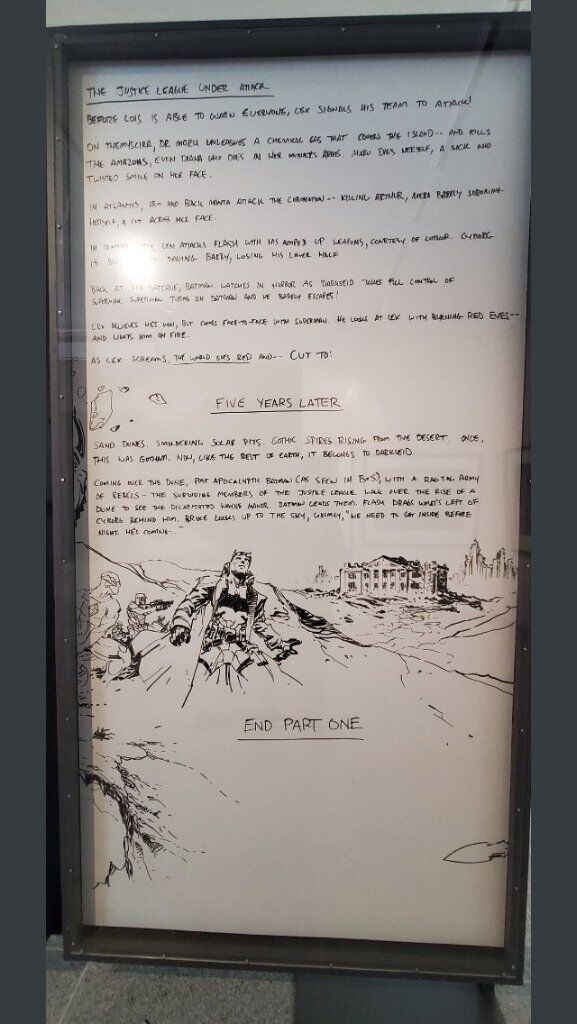 THE JUSTICE LEAGUE UNDER ATTACK
BEFORE LOIS IS ABLE TO WARN EVERYONE, LEX SIGNALS HIS TEAM TO ATTACK!
ON THEMYSCIRA, DR. MARU UNLEASHES A CHEMICAL GAS THAT COVERS THE ISLAND-- AND KILLS
THE AMAZONS, EVEN DIANA WHO DIES IN HER MOTHERS ARMS. MARU DIES HERSELF, A SICK AND
TWISTED SMILE ON HER FACE.
IN ATLANTIS, ORM AND BLACK MANTA ATTACK THE CORONATION-- KILLING ARTHUR, MERA BARELY SURVIVING
HERSELF, A CUT ACROSS HER FACE.
IN CENTRAL CITY, LEN ATTACKS FLASH WITH HIS AMPED UP WEAPONS, COURTESY OF LUTHOR. CYBORG
IS SAVING BARRY, LOSING HIS LOWER HALF
BACK AT THE BATCAVE, BATMAN WATCHES IN HORROR AS DARKSEID TAKES FULL CONTROL OF
SUPERMAN. SUPERMAN TURNS ON BATMAN AND HE BARELY ESCAPES!
LEX BELIEVES HE'S WON, BUT COMES FACE-TO-FACE WITH SUPERMAN. HE LOOKS AT LEX WITH BURNING RED EYES--
AND LIGHTS HIM ON FIRE.
AS LEX SCREAMS, THE WORLD GOES RED AND-- CUT TO:
FIVE YEARS LATER
SAND DUNES. SMOLDERING SOLAR PITS. GOTHIC SPIRES RISING FROM THE DESERT. ONCE,
THIS WAS GOTHAM. NOW, LIKE THE REST OF EARTH, IT BELONGS TO DARKSEID.
COMING OVER THE DUNE, POST APOCALYPTIC BATMAN (AS SEEN IN BvS), WITH A RAGTAG ARMY
OF REBELS - THE SURVIVING MEMBERS OF THE JUSTICE LEAGUE WALK OVER THE RISE OF A
DUNE TO SEE THE DILAPIDATED WAYNE MANOR. BATMAN LEADS THEM. FLASH DRAGS WHAT'S LEFT OF
CYBORG BEHIND HIM. BRUCE LOOKS UP TO THE SKY, GRIMLY, "WE NEED TO GET INSIDE BEFORE
NIGHT. HE'S COMING--"
END PART ONE